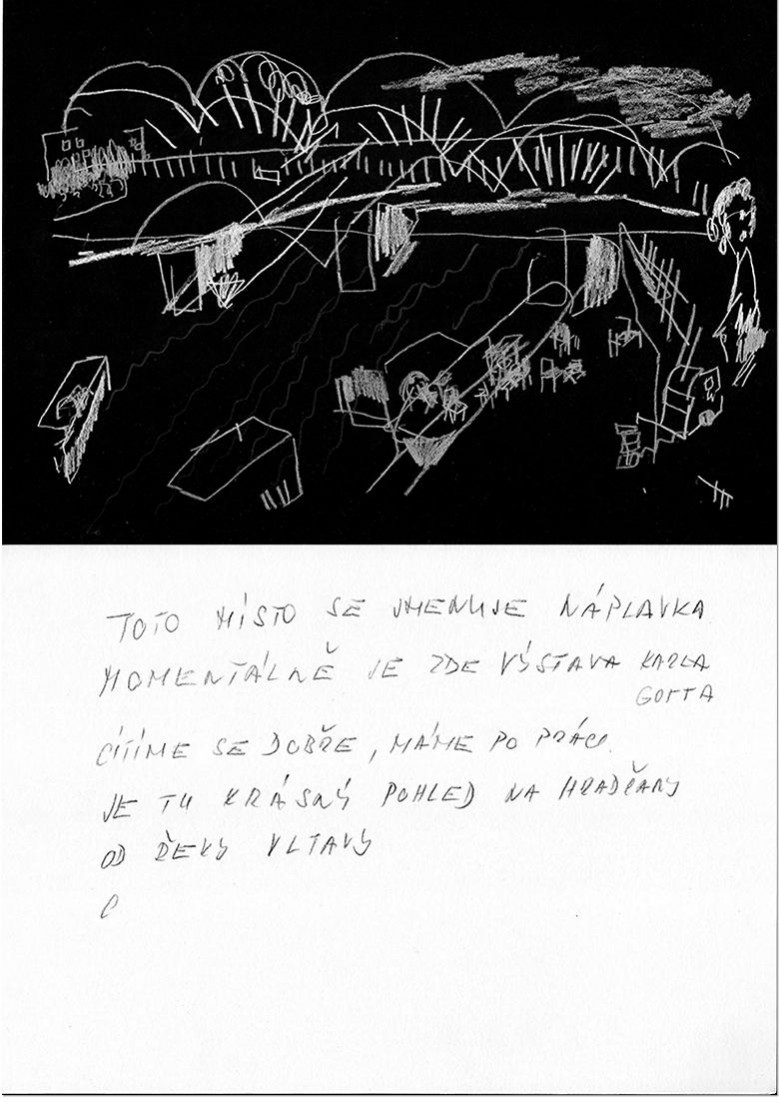 TOTO MÍSTO SE JMENUJE NÁPLAVKA
MOMENTÁLNĚ JE ZDE VÝSTAVA KARLA
GOTTA
CÍTÍME SE DOBŘE, MÁME PO PRÁCI.
JE TU KRÁSNÝ POHLED NA HRADČANY
OD ŘEKY VLTAVY
C